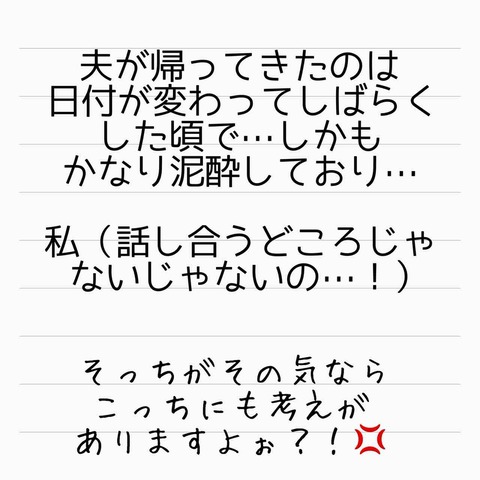 夫が帰ってきたのは
日付が変わってしばらく
した頃で…しかも
かなり泥酔しており…
私（話し合うどころじゃ
ないじゃないの…！）
そっちがその気なら
こっちにも考えが
ありますよぉ？！💢